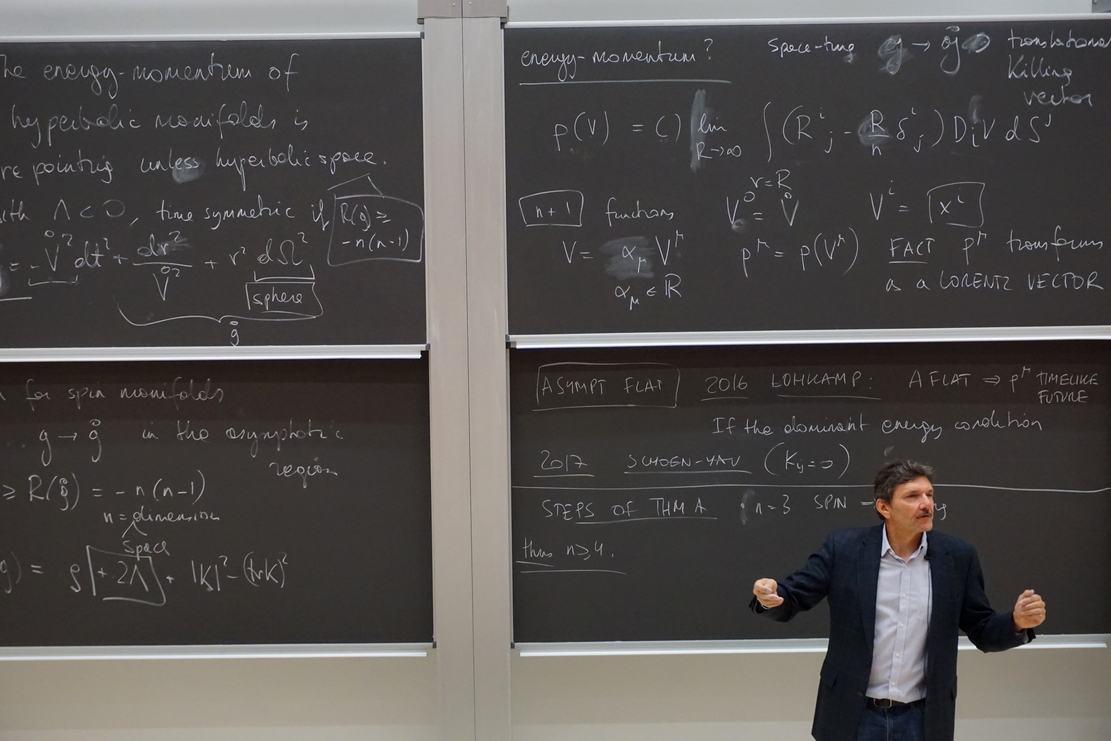 he energy-momentum of
hyperbolic manifolds is
re pointing unless hyperbolic space.
ith Λ < 0, time symmetric if R(g) ≥ -n(n-1)
= -V̊²dt² + dr²/V̊² + r² dΩ²
sphere
g̊
for spin manifolds
g → g̊ in the asymptotic
region
≥ R(g̊) = -n(n-1)
n = dimension
space
g) = ρ + 2Λ + |K|² - (trK)²
energy-momentum?
space-time g → g̊
translational
Killing
vector
p(V) = C) lim R→∞ ∫(Rⁱⱼ - R/n δⁱⱼ) DᵢV dSʲ
r=R
n+1 functions
V⁰ = V̊
Vⁱ = xⁱ
V = α_μ V^μ
p^μ = p(V^μ)
FACT p^μ transforms
α_μ ∈ ℝ
as a LORENTZ VECTOR
ASYMPT FLAT 2016 LOHKAMP: AFLAT ⇒ p^μ TIMELIKE
FUTURE
If the dominant energy condition
2017 SCHOEN-YAU (Kij=0)
STEPS OF THM A n=3 SPIN
thus n≥4.